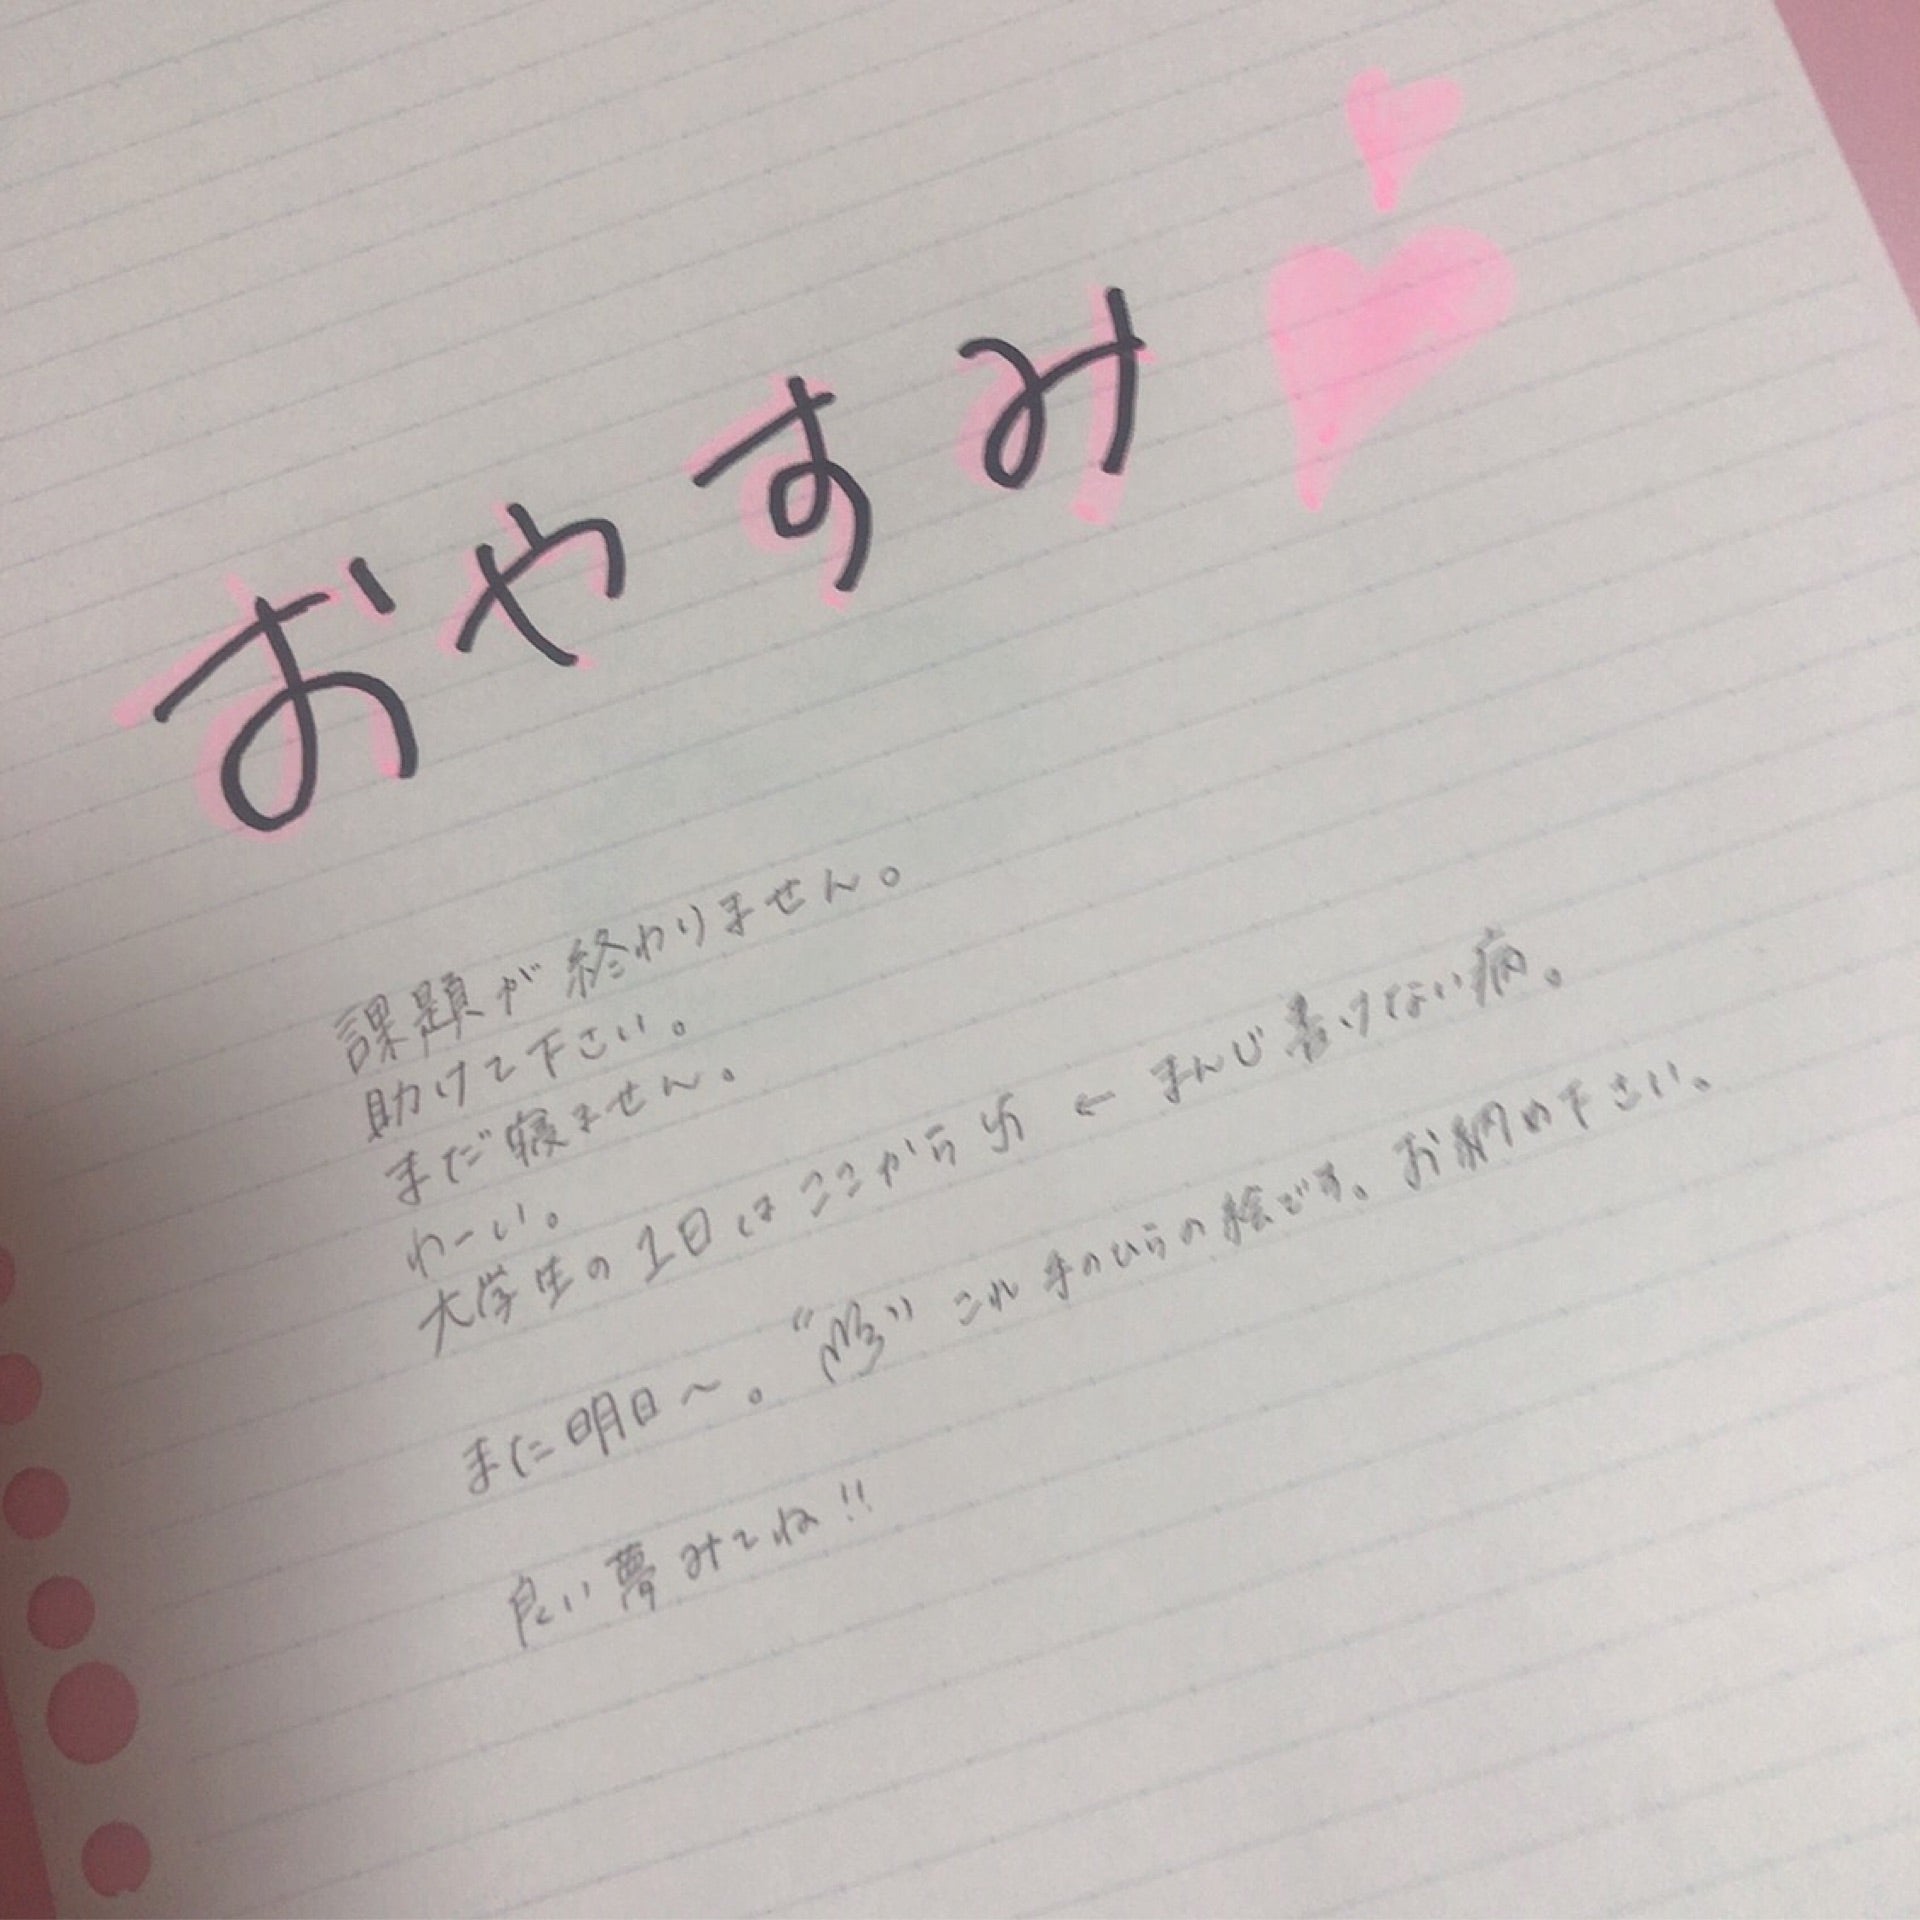 おやすみ
課題が終わりません。
助けて下さい。
まだ寝ません。
わーい。
大学生の1日はここから卐 ← まんじ書けない病。
また明日〜。 これ手のひらの絵です。お納め下さい。
良い夢みてね!!